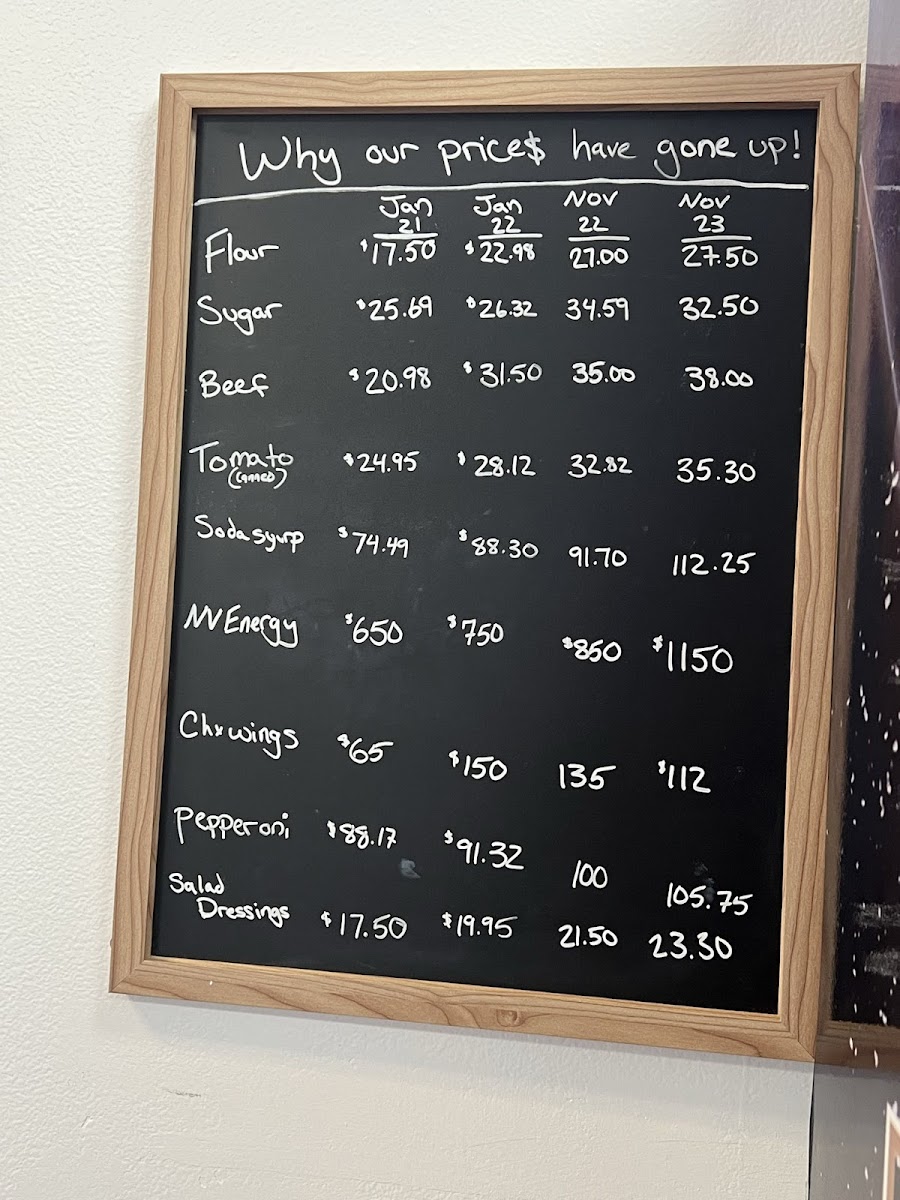 Why our price$ have gone up!
Jan 21 Jan 22 Nov 22 Nov 23
Flour $17.50 $22.98 27.00 27.50
Sugar $25.69 $26.32 34.59 32.50
Beef $20.98 $31.50 35.00 38.00
Tomato $24.95 $28.12 32.82 35.30
(canned)
Soda syurp $74.49 $88.30 91.70 112.25
NV Energy $650 $750 $850 $1150
Chx wings $65 $150 135 $112
Pepperoni $88.17 $91.32 100 105.75
Salad
Dressings $17.50 $19.95 21.50 23.30